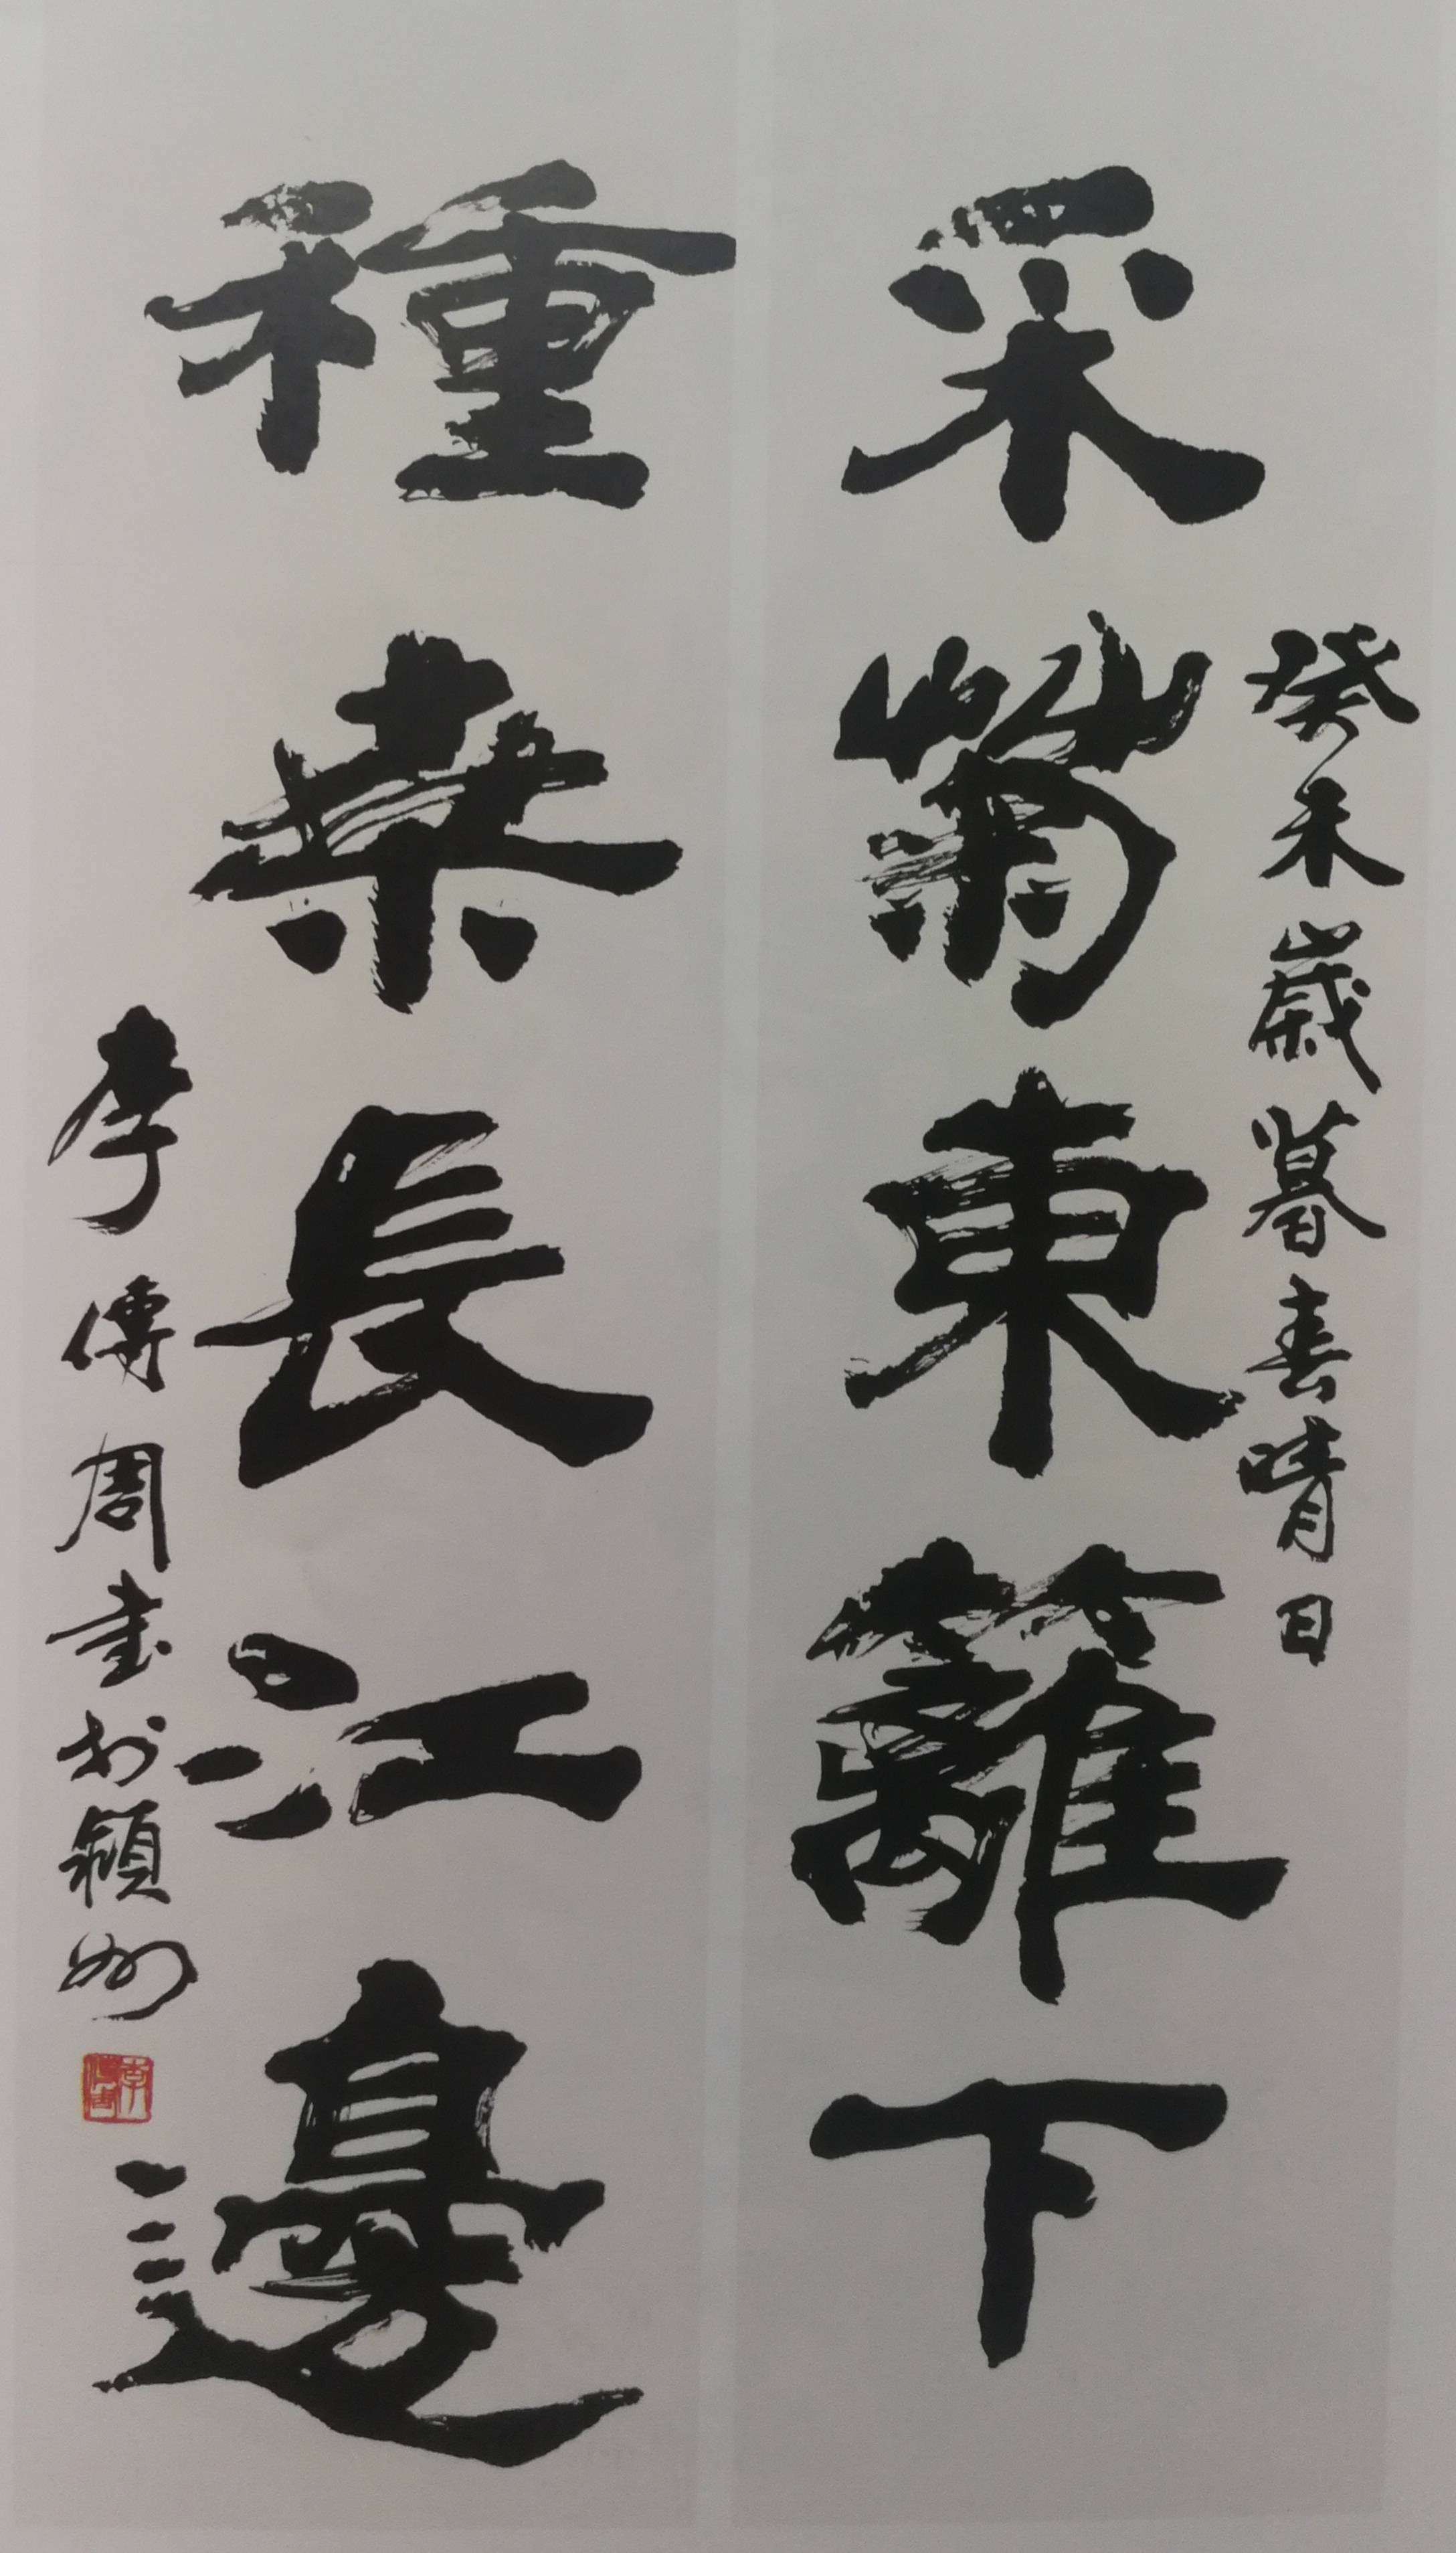 癸未歲暮春晴日
采菊東籬下
種桒長江邊
李傳周書於潁州
李傳周